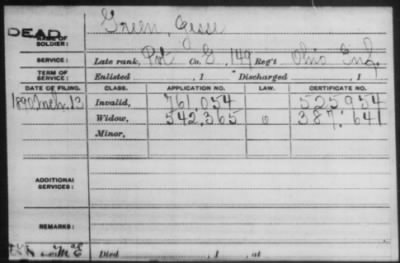 DEAD.
Green, Jesse
NAME OF SOLDIER:
SERVICE: Late rank, Pvt Co. E, 149 Reg't Ohio Inf.
TERM OF SERVICE: Enlisted , 1 Discharged , 1
DATE OF FILING. CLASS. APPLICATION NO. LAW. CERTIFICATE NO.
1890 Mch. 13 Invalid, 761,054 525954
Widow, 542,365 387,641
Minor,
ADDITIONAL SERVICES:
REMARKS:
Died , 1 , at